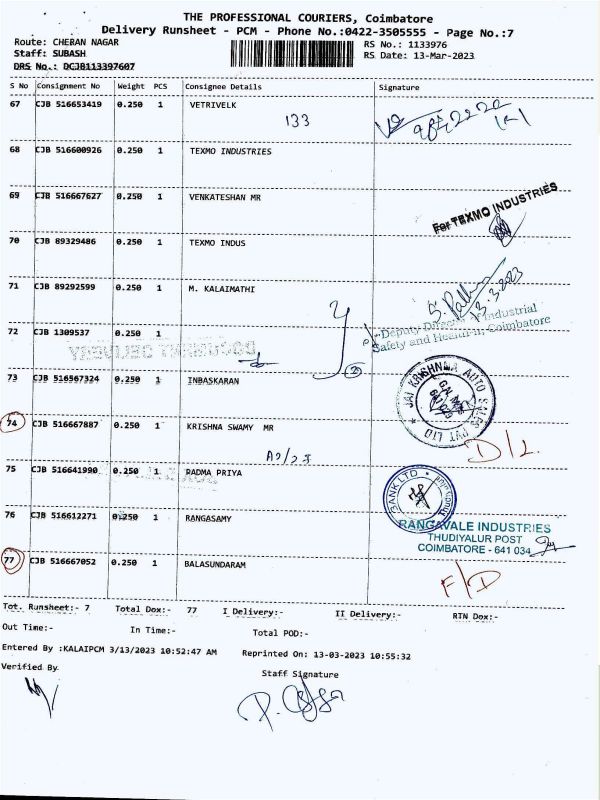 THE PROFESSIONAL COURIERS, Coimbatore
Delivery Runsheet - PCM - Phone No.:0422-3505555 - Page No.:7
Route: CHERAN NAGAR RS No.: 1133976
Staff: SUBASH RS Date: 13-Mar-2023
DRS No.: DCJB113397607
S No Consignment No Weight PCS Consignee Details Signature
67 CJB 516653419 0.250 1 VETRIVELK
133
68 CJB 516600926 0.250 1 TEXMO INDUSTRIES
69 CJB 516667627 0.250 1 VENKATESHAN MR
For TEXMO INDUSTRIES
70 CJB 89329486 0.250 1 TEXMO INDUS
71 CJB 89292599 0.250 1 M. KALAIMATHI
13.3.2023
Deputy Director of Industrial
Safety and Health-II, Coimbatore
72 CJB 1309537 0.250 1
73 CJB 516567324 0.250 1 INBASKARAN
JAI KRISHNAA AUTO SALES PVT LTD
74 CJB 516667887 0.250 1 KRISHNA SWAMY MR
D/L
75 CJB 516641990 0.250 1 PADMA PRIYA
BANK LTD
76 CJB 516612271 0.250 1 RANGASAMY
RANGAVALE INDUSTRIES
THUDIYALUR POST
COIMBATORE - 641 034
77 CJB 516667052 0.250 1 BALASUNDARAM
F/D
Tot. Runsheet:- 7 Total Dox:- 77 I Delivery:- II Delivery:- RTN Dox:-
Out Time:- In Time:- Total POD:-
Entered By :KALAIPCM 3/13/2023 10:52:47 AM Reprinted On: 13-03-2023 10:55:32
Verified By Staff Signature